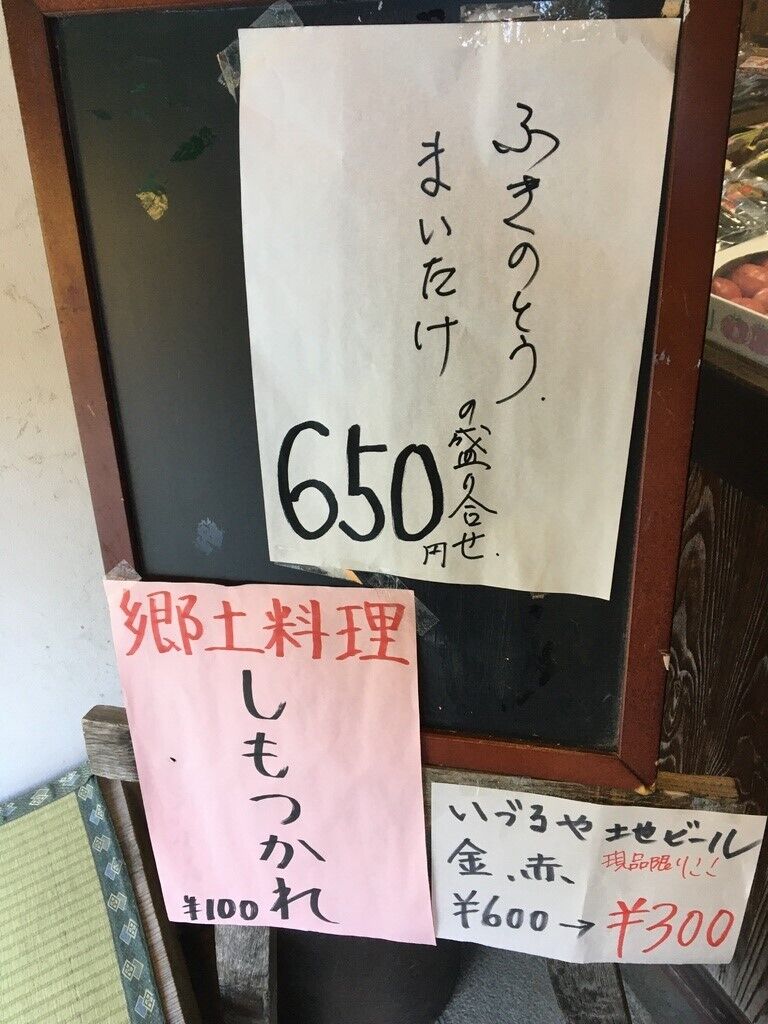 ふきのとう.
まいたけ
の盛り合せ.
650円
郷土料理
しもつかれ
¥100
いづるや 地ビール
金、赤、
現品限り!!
¥600→¥300